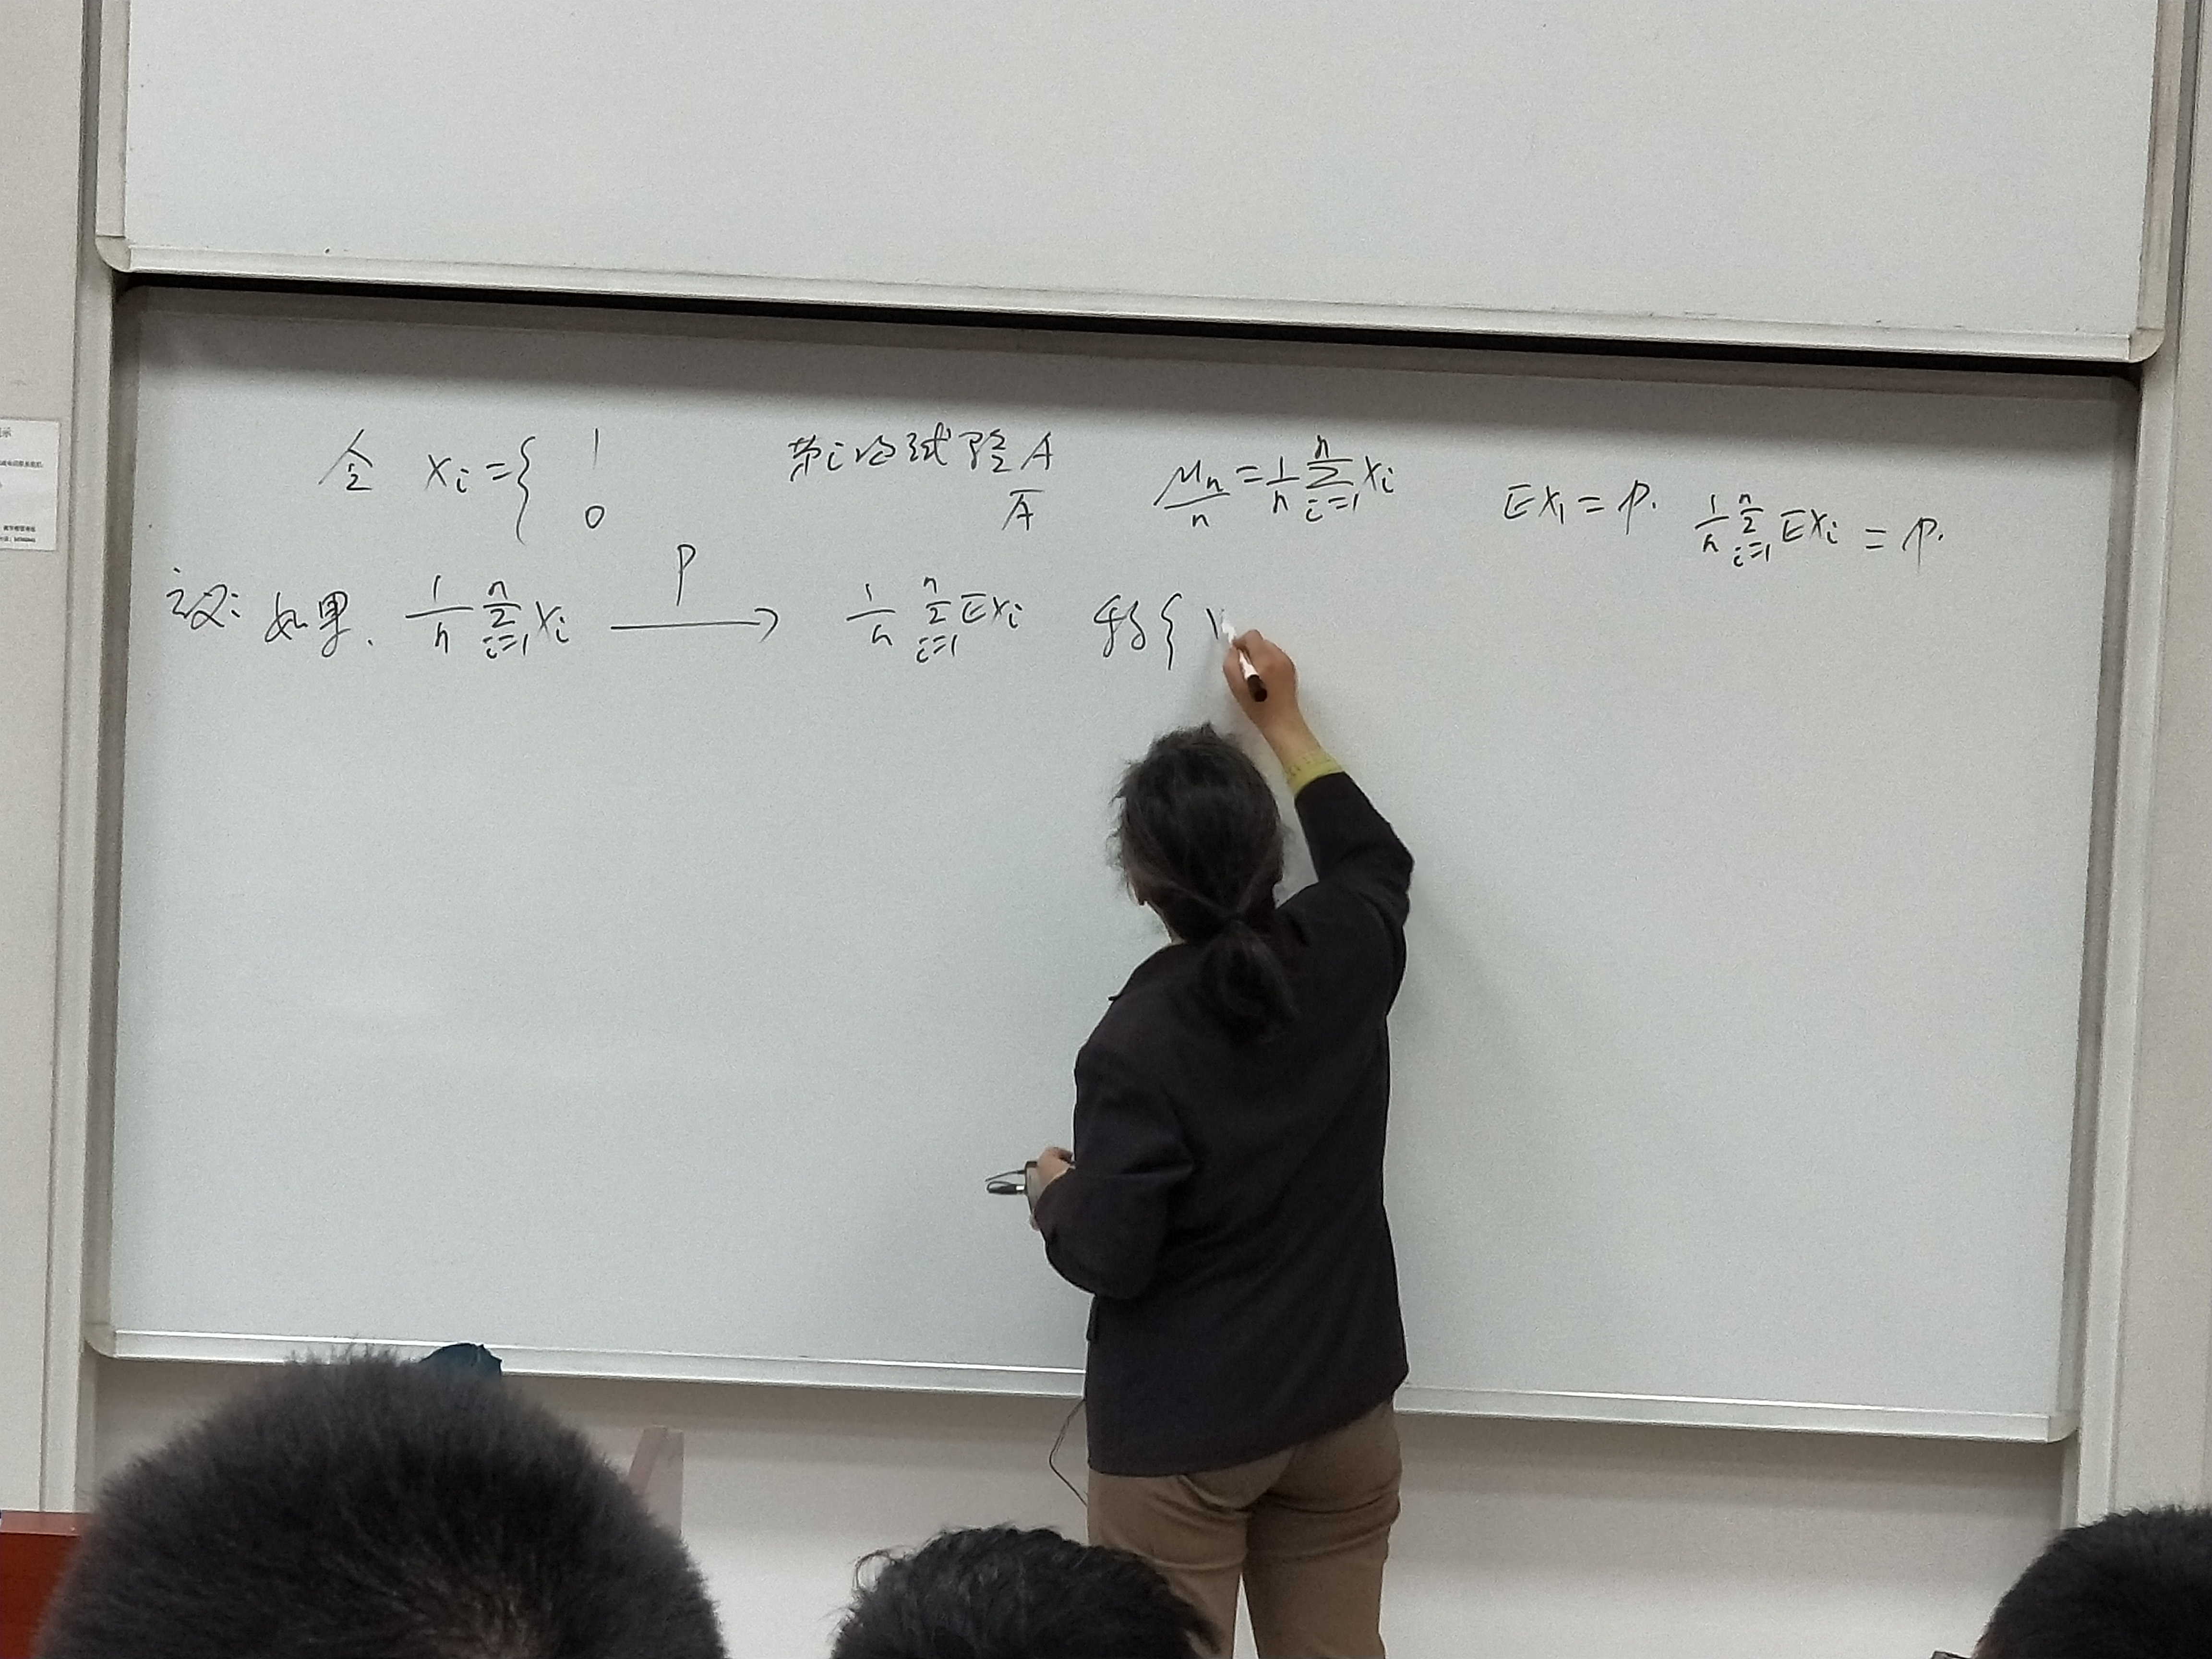 令 Xi = { 1 第i次试验A μn/n = 1/n ∑_{i=1}^{n} Xi EX1 = p. 1/n ∑_{i=1}^{n} EXi = p.
0 Ā
定义: 如果. 1/n ∑_{i=1}^{n} Xi —P→ 1/n ∑_{i=1}^{n} EXi 称{